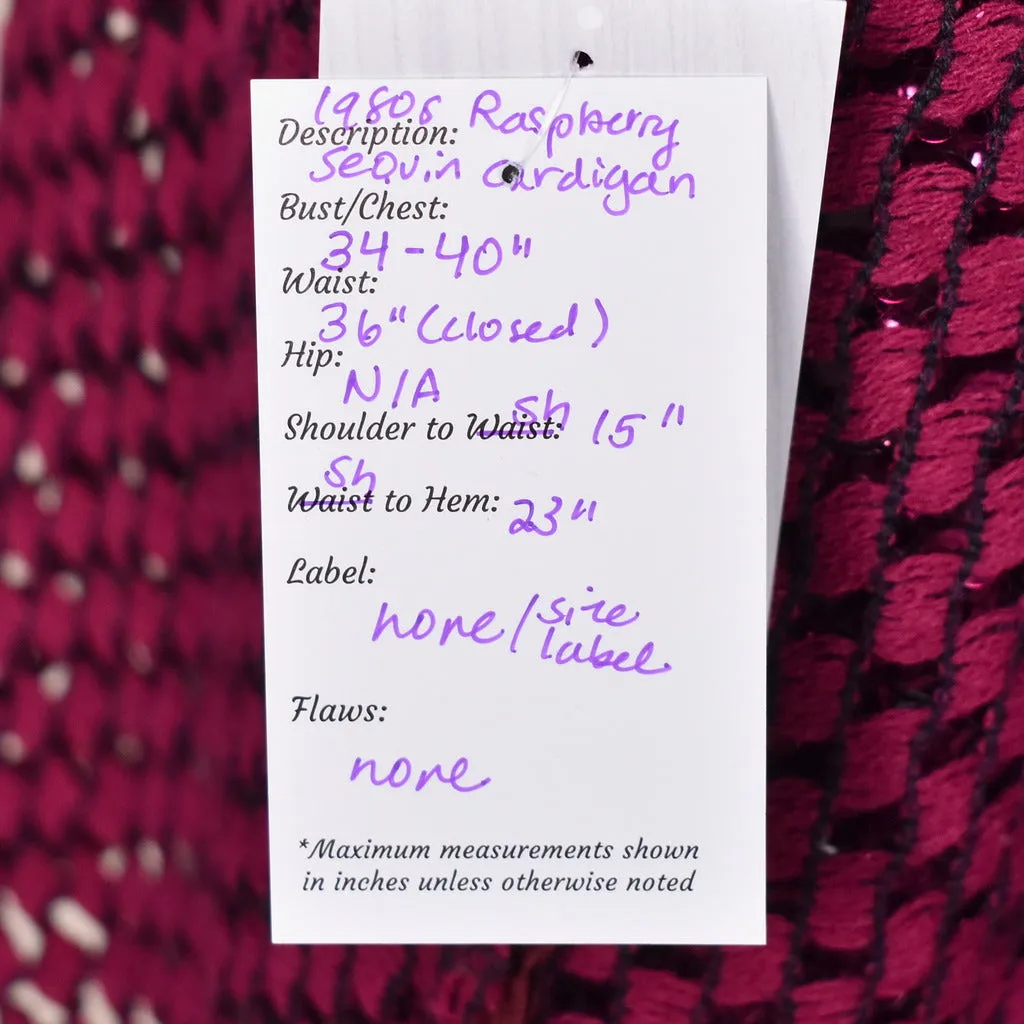 1980s Raspberry
Description:
Sequin Cardigan
Bust/Chest:
34-40"
Waist:
36" (closed)
Hip:
N/A
sh
Shoulder to Waist: 15"
sh
Waist to Hem: 23"
Label:
none/size
label
Flaws:
none
*Maximum measurements shown
in inches unless otherwise noted